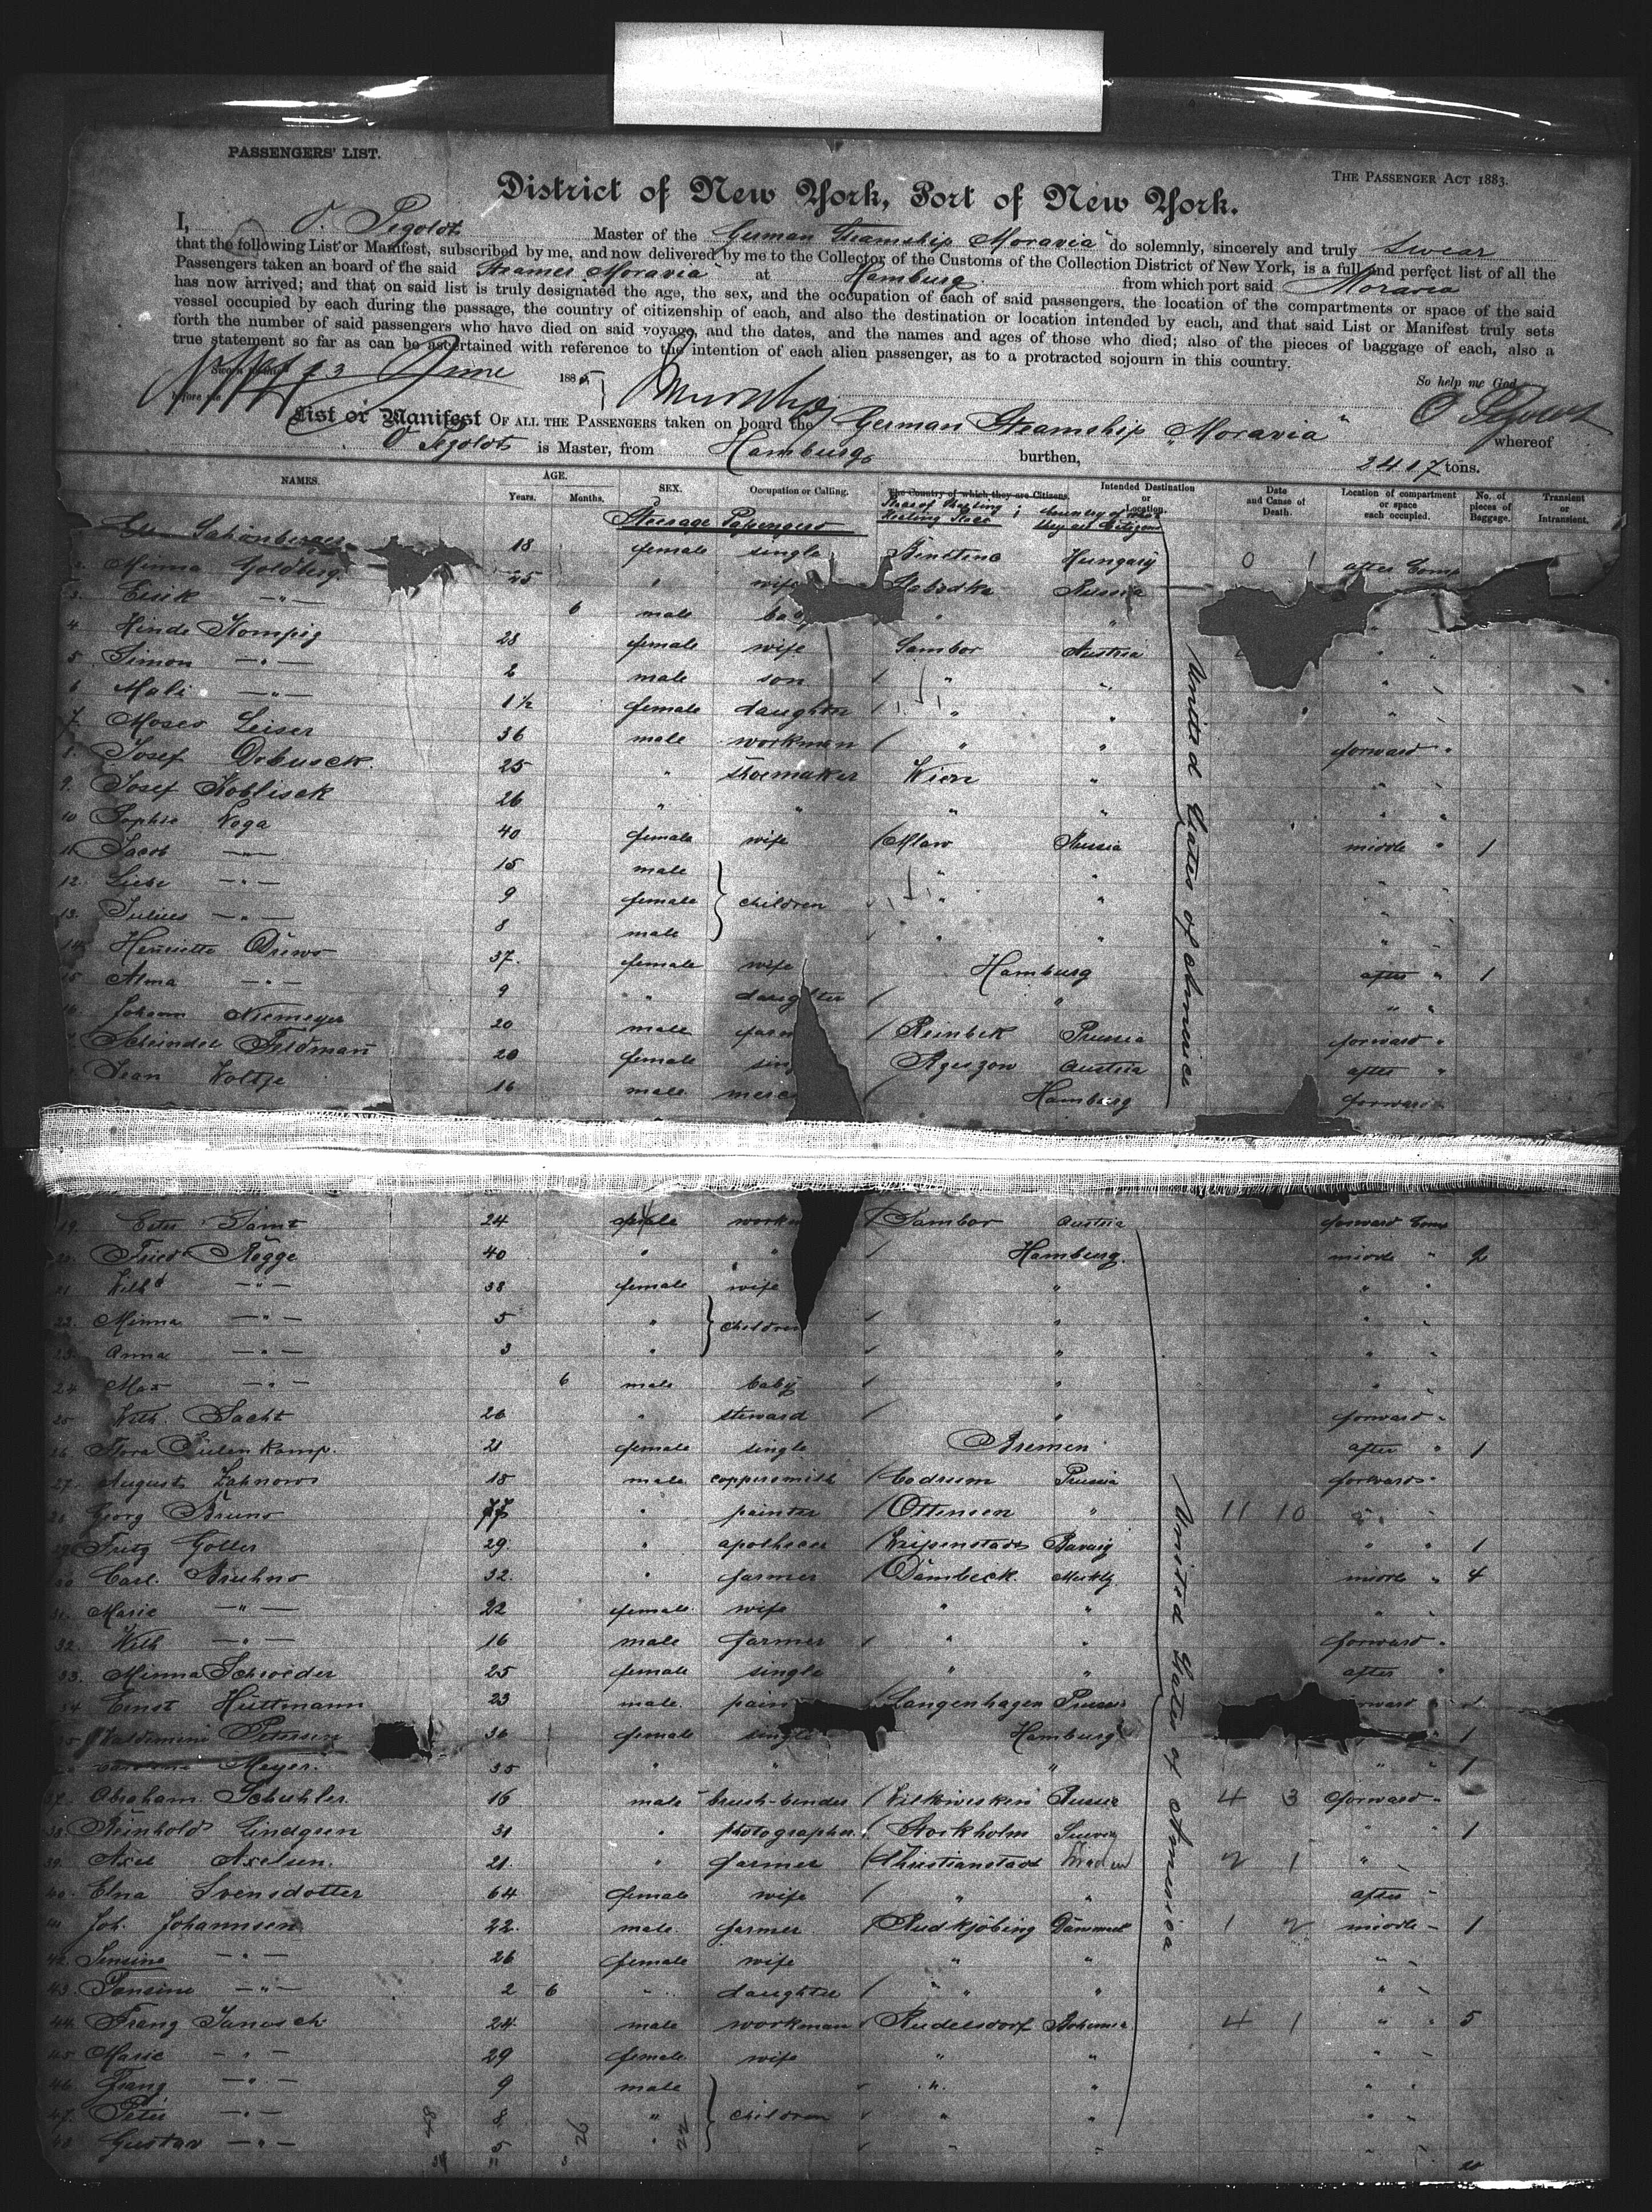 PASSENGERS' LIST.
THE PASSENGER ACT 1883.
District of New York, Port of New York.
I, O. Pezoldt Master of the German Steamship Moravia do solemnly, sincerely and truly swear
that the following List or Manifest, subscribed by me, and now delivered by me to the Collector of the Customs of the Collection District of New York, is a full and perfect list of all the
Passengers taken an board of the said Steamer Moravia at Hamburg from which port said Moravia
has now arrived; and that on said list is truly designated the age, the sex, and the occupation of each of said passengers, the location of the compartments or space of the said
vessel occupied by each during the passage, the country of citizenship of each, and also the destination or location intended by each, and that said List or Manifest truly sets
forth the number of said passengers who have died on said voyage, and the dates, and the names and ages of those who died; also of the pieces of baggage of each, also a
true statement so far as can be ascertained with reference to the intention of each alien passenger, as to a protracted sojourn in this country.
Sworn 13 June 1885 So help me God
before me O Pezoldt
List or Manifest OF ALL THE PASSENGERS taken on board the German Steamship "Moravia" whereof
O Pezoldt is Master, from Hamburg burthen, 2417 tons.
NAMES. AGE. Years. Months. SEX. Occupation or Calling. The Country of which they are Citizens. Intended Destination or Location. Date and Cause of Death. Location of compartment or space each occupied. No. of pieces of Baggage. Transient or Intransient.
Steerage Passengers Country of which they are Citizens
Schönberger 18 female single Hungary 0 1 after Comp
2. Minna Goldberg 25 " wife Russia
3. Eisik -"- 6 male " "
4. Hinde Kompig 28 female wife Sambor Austria "
5. Simon -"- 2 male son " " "
6. Mali -"- 1½ female daughter " " "
7. Moses Leiser 36 male workman " " forward "
8. Josef Drbusck 25 " shoemaker Wien " "
9. Josef Koblisek 26 " " " " "
10 Sophie Noga 40 female wife Mlaw Russia middle " 1
11 Jacob -"- 15 male " " "
12. Liebe -"- 9 female children " " "
13. Julius -"- 8 male " " "
14. Henriette Drews 37. female wife Hamburg after " 1
15 Alma -"- 9 " daughter " " "
16. Johann Niemeyer 20 male Reinbek Prussia forward "
Scheindel Feldmann 20 female Rzeszow Austria after "
Jean Woltje 16 male Hamburg forward "
United States of America
19. 24 Sambor Austria forward Comp
20. Friedr Rogge 40 " " Hamburg. middle " 2
21 Wilhe -"- 38 female wife " " "
22. Minna -"- 5 " children " " "
23. Anna -"- 3 " " " "
24 Max -"- 6 male baby " " "
25 Wilh. Sacht 26 " steward " forward "
26 Flora Sulenkamp. 21 female single Bremen after " 1
27. August Zahnow 18 male coppersmith Codrum Prussia forward "
28 Georg Bruns " painter Ottensen " 11 10 " "
29. Fritz Goller 29. " Bavaria " " 1
30 Carl. Bruhns 32. " farmer Dambeck. Mecklbg middle " 4
31. Marie -"- 22 female wife " " " "
32. Wilh -"- 16 male farmer " " forward "
33. Minna Schroeder 25 female single " " after "
34 Ernst Hüttmann 23 male Langenhagen Prussia 1
35 Petersen 36 female single Hamburg 1
Meyer. 35 " " " " " 1
37. Abraham Schuhler. 16 male brush-binder Wilkowisken Russia 4 3 forward "
38. Reinhold Lindgren 31 " photographer Stockholm " " 1
39. Axel Axelsen. 21. " farmer Christianstad Sweden 2 1 " "
40. Elna Svensdotter 64 female wife " " after "
41 Joh. Johannsen 22. male farmer Rudkjöbing 1 2 middle " 1
42. Jensine " 26 female wife " " " "
43. Jansine -"- 2 6 " daughter " " " "
44. Franz Janosch 24 male workman Rudelsdorf Bohemia 4 1 " " 5
45. Marie -"- 29 female wife " " " "
46. Franz -"- 9 male children " " " "
47. Peter -"- 8. " " " " "
48 Gustav -"- 5 " " " " "
United States of America